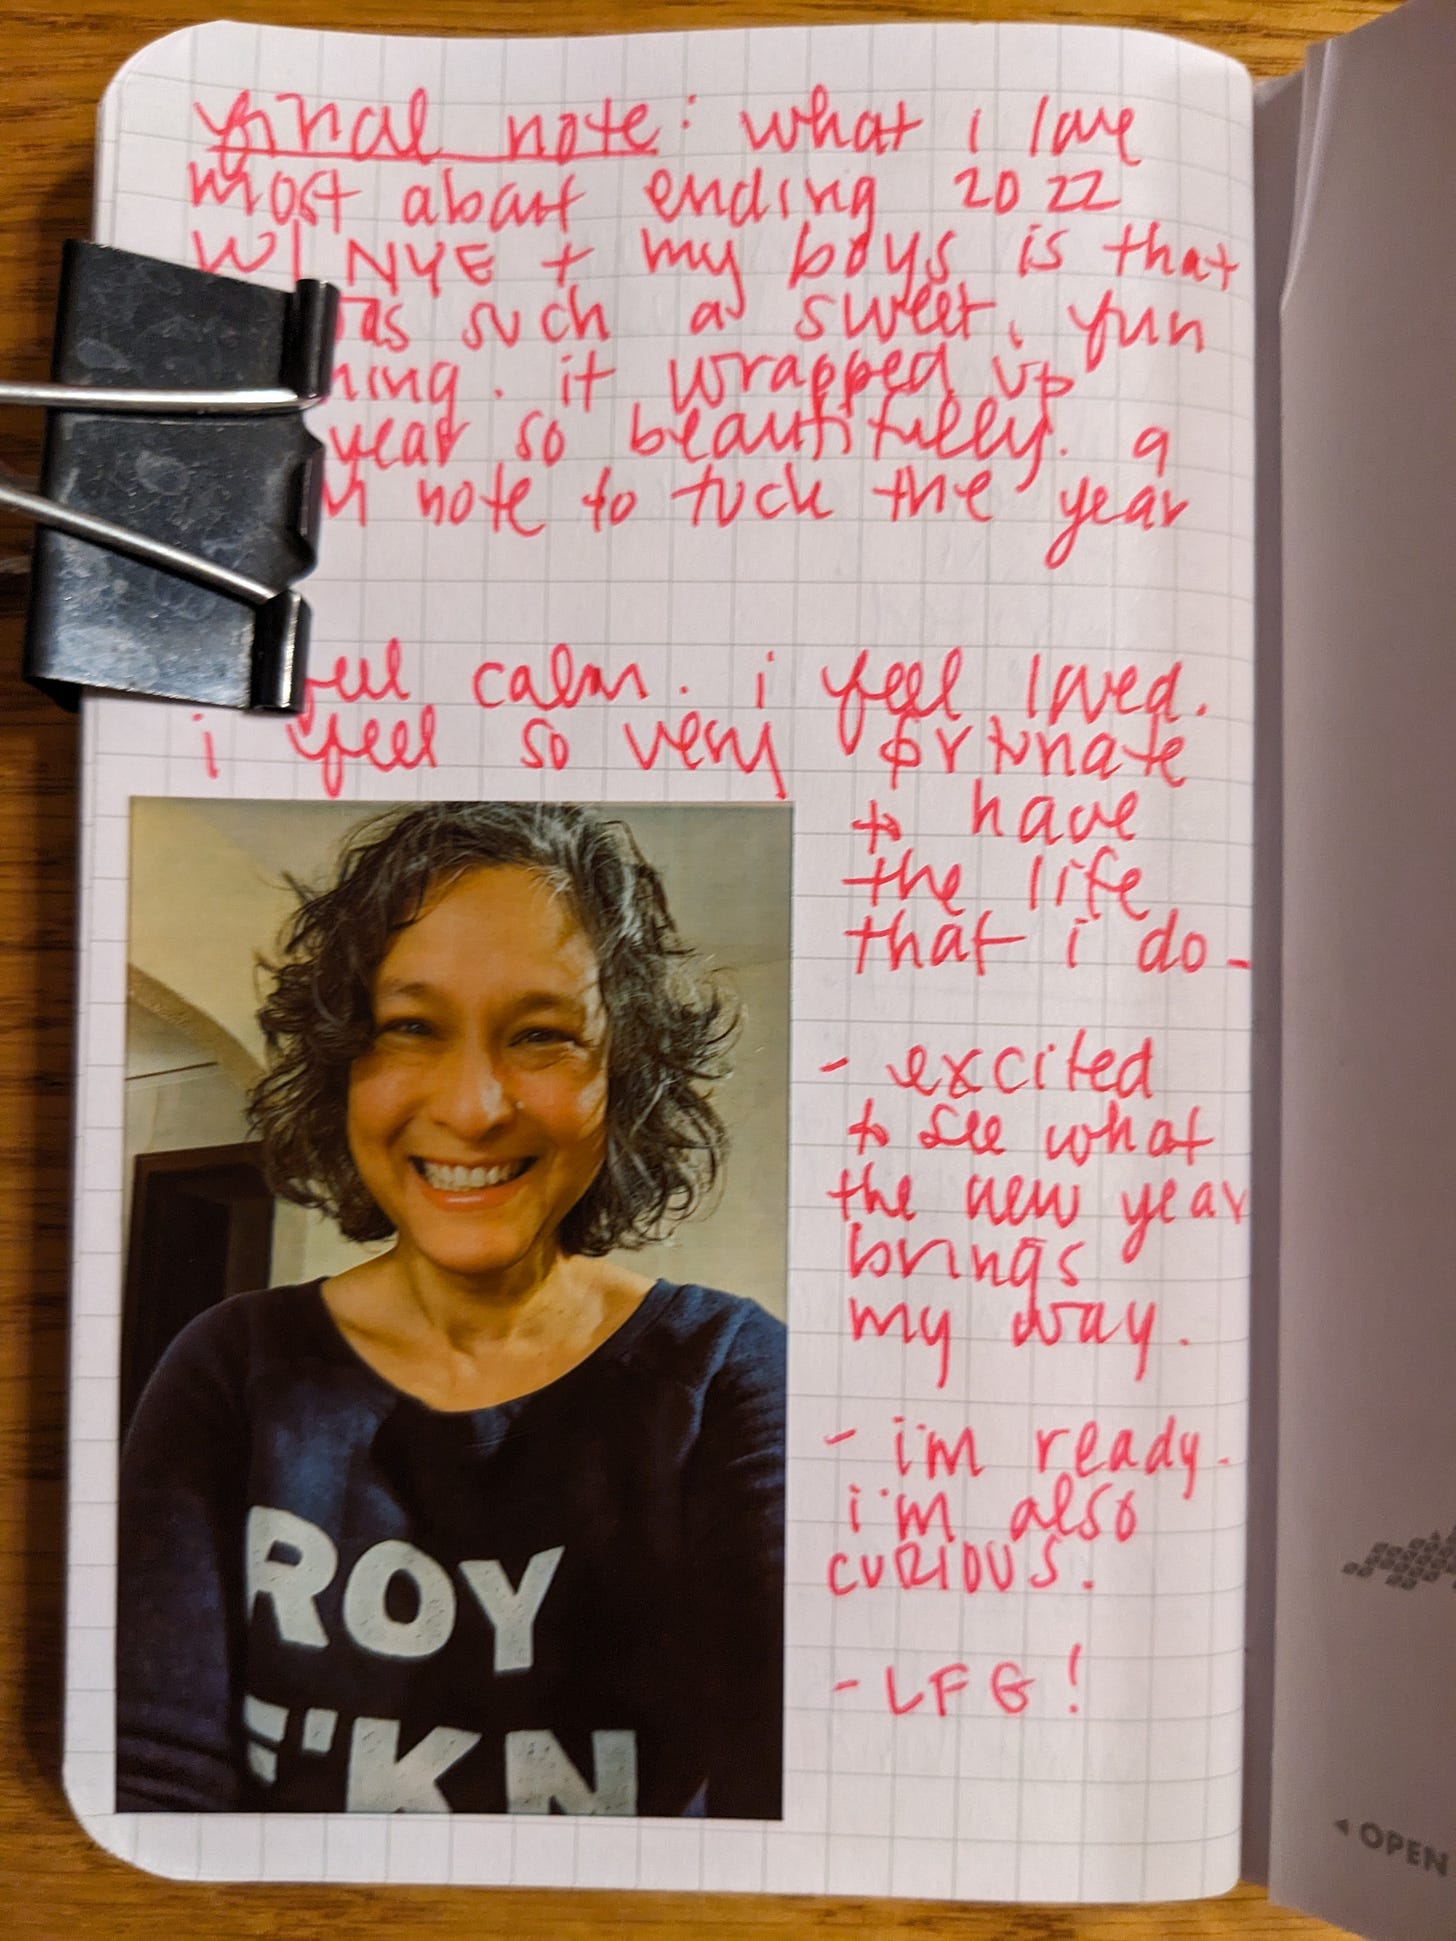 final note: what i love
most about ending 2022
w/ NYE + my boys is that
such a sweet, fun
it wrapped up
year so beautifully. a
note to tuck the year
calm. i feel loved.
i feel so very fortunate
to have
the life
that i do -
- excited
to see what
the new year
brings
my way.
- i'm ready.
i'm also
curious.
- LFG!
ROY
F'KN
OPEN